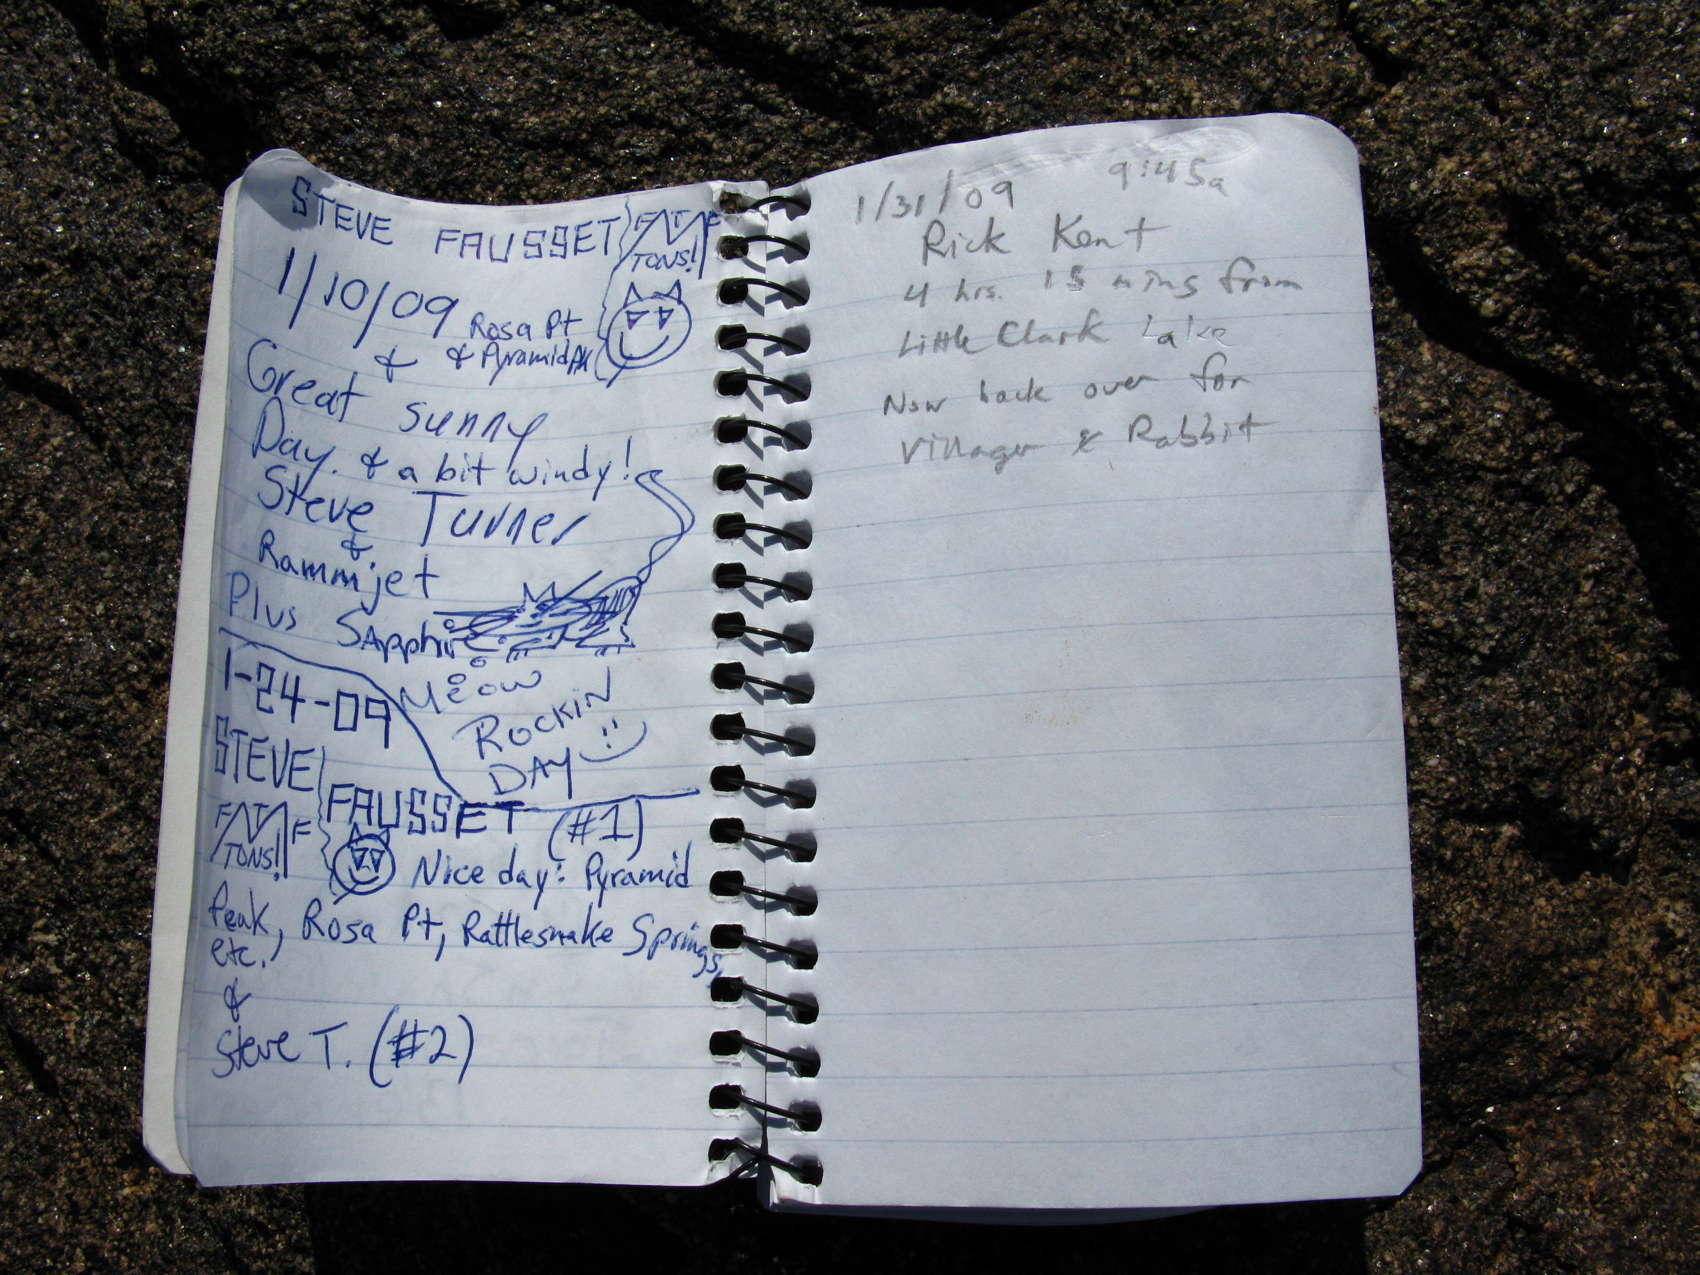 STEVE FAUSSET
FAT
TONS!!
1/10/09 Rosa Pt
& & Pyramid PK
Great sunny
Day. & a bit windy!
Steve Turner
&
Rammjet
Plus Sapphire
Meow
ROCKIN
DAY
1-24-09
STEVE
FAUSSET (#1)
FAT F
TONS!!
Nice day: Pyramid
Peak, Rosa Pt, Rattlesnake Springs,
etc.
&
Steve T. (#2)
1/31/09 9:45a
Rick Kent
4 hrs. 15 mins from
Little Clark Lake
Now back over for
Villager & Rabbit